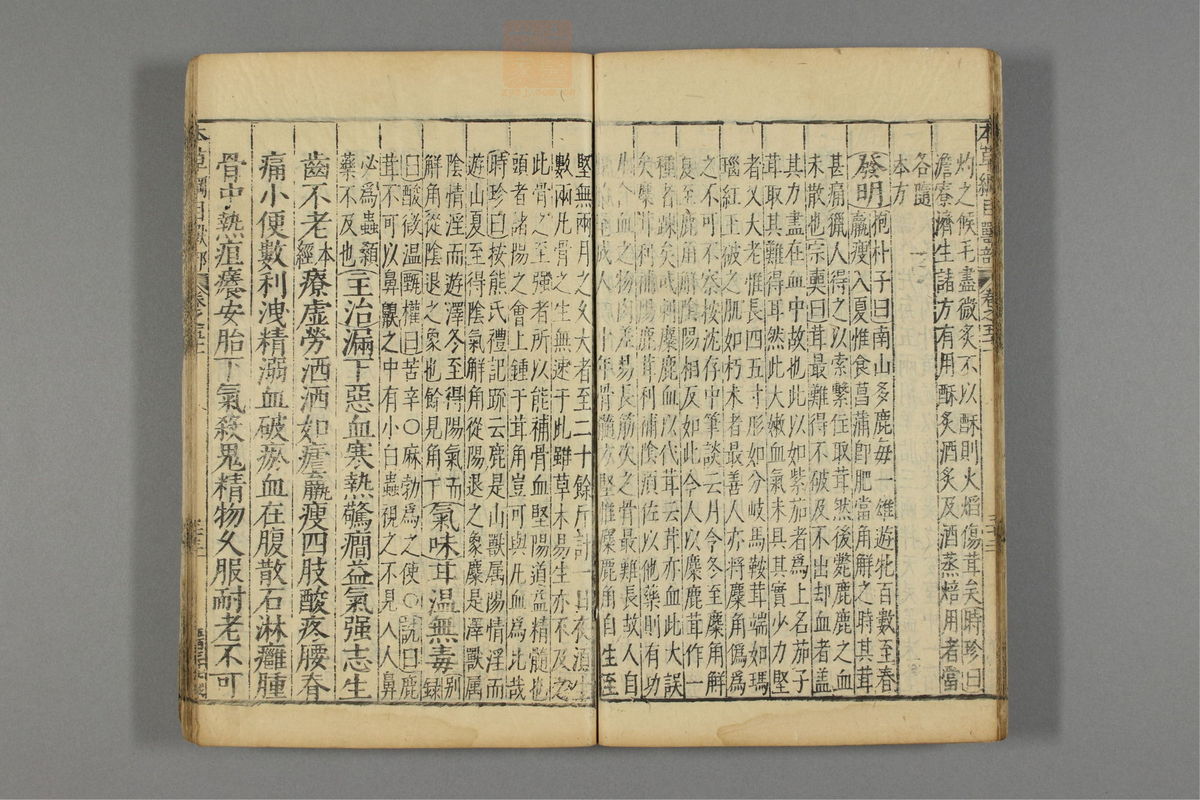 本草綱目獸部 卷之五十一
灼之候毛盡微炙不以酥則火熖傷茸矣時珍曰
澹寮濟生諸方有用酥炙酒炙及酒蒸焙用者當
各隨
本方
發明抱朴子曰南山多鹿每一雄遊牝百數至春
羸瘦入夏惟食菖蒲卽肥當角解之時其茸
甚痛獵人得之以索繫住取茸然後斃鹿鹿之血
未散也宗奭曰茸最難得不破及不出却血者蓋
其力盡在血中故也此以如紫茄者爲上名茄子
茸取其難得耳然此大嫩血氣未具其實少力堅
者又大老惟長四五寸形如分歧馬鞍茸端如瑪
瑙紅玉破之肌如朽木者最善人亦將麋角僞爲
之不可不察按沈存中筆談云月令冬至麋角解
夏至鹿角解陰陽相反如此今人以麋鹿茸作一
種者踈矣或刺麋鹿血以代茸云茸亦血此大誤
矣麋茸利補陽鹿茸利補陰須佐以他藥則有功
凡含血之物肉差易長筋次之骨最難長故人自
成人二十年骨髓方堅惟麋鹿角自生至
堅無兩月之久大者至二十餘斤計一日夜須生
數兩凡骨之生無速于此雖草木易生亦不及之
此骨之至强者所以能補骨血堅陽道益精髓也
頭者諸陽之會上鍾于茸角豈可與凡血爲比哉
時珍曰按熊氏禮記疏云鹿是山獸属陽情淫而
遊山夏至得陰氣解角從陽退之象麋是澤獸属
陰情淫而遊澤冬至得陽氣而
解角從陰退之象也餘見角下氣味茸温無毒别録
曰酸微温甄權曰苦辛○麻勃爲之使○詵曰鹿
茸不可以鼻齅之中有小白蟲視之不見入人鼻
必爲蟲顙
藥不及也主治漏下惡血寒熱驚癎益氣强志生
齒不老本經療虛勞洒洒如瘧羸瘦四肢酸疼腰脊
痛小便數利洩精溺血破瘀血在腹散石淋癰腫
骨中熱疽癢安胎下氣殺鬼精物久服耐老不可
本草綱目獸部